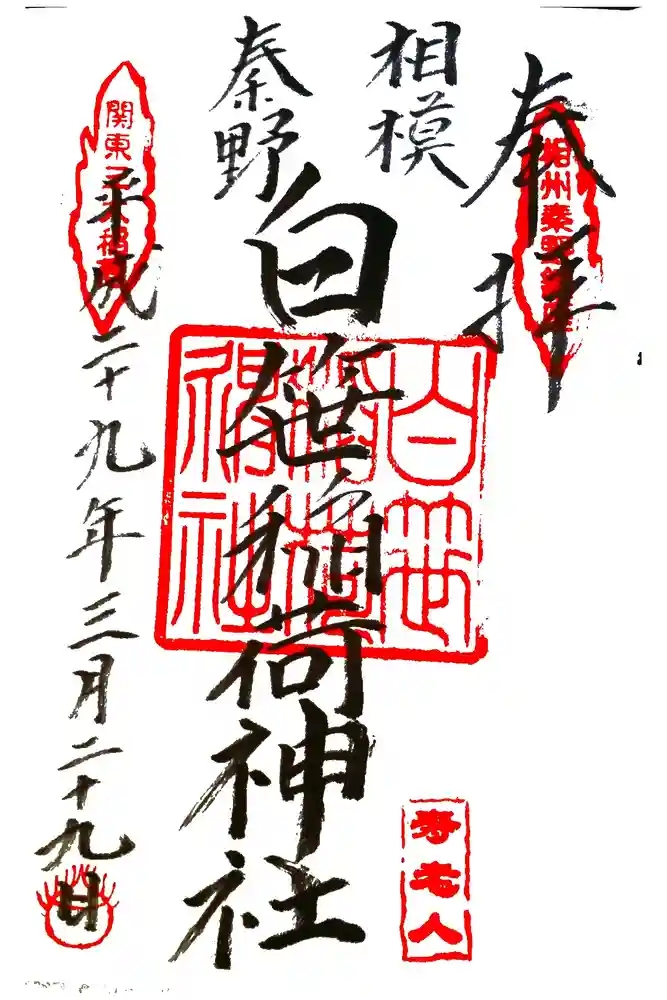 奉拝
相州秦野鎮座
相模
秦野
白笹稲荷神社
白笹
稲荷
神社
平成二十九年三月二十九日
関東三大稲荷
寿老人